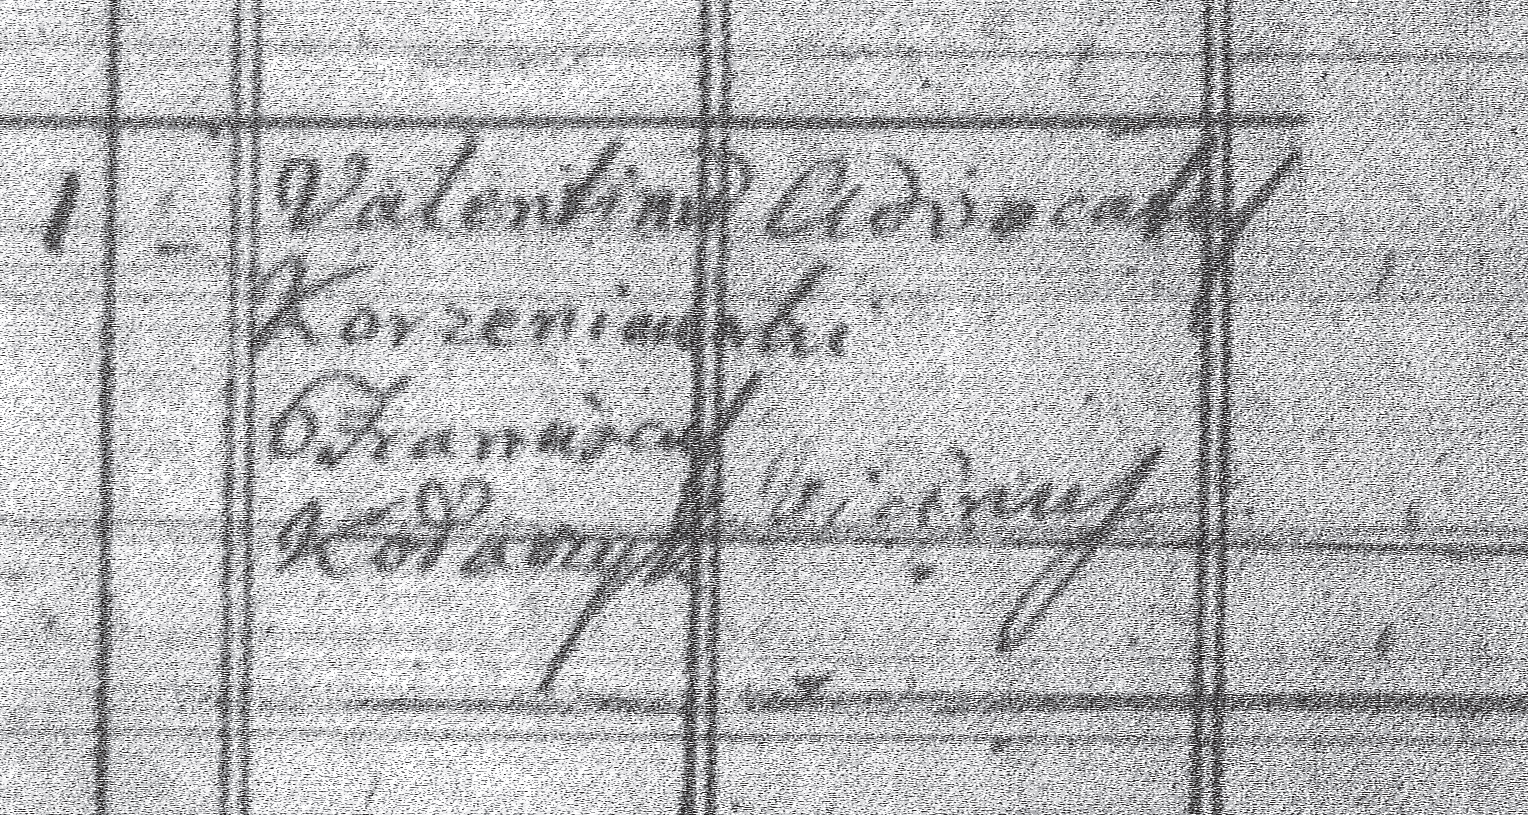 1 Valentinus Advocatus
Korzeniowski
Franciscus
Viduus